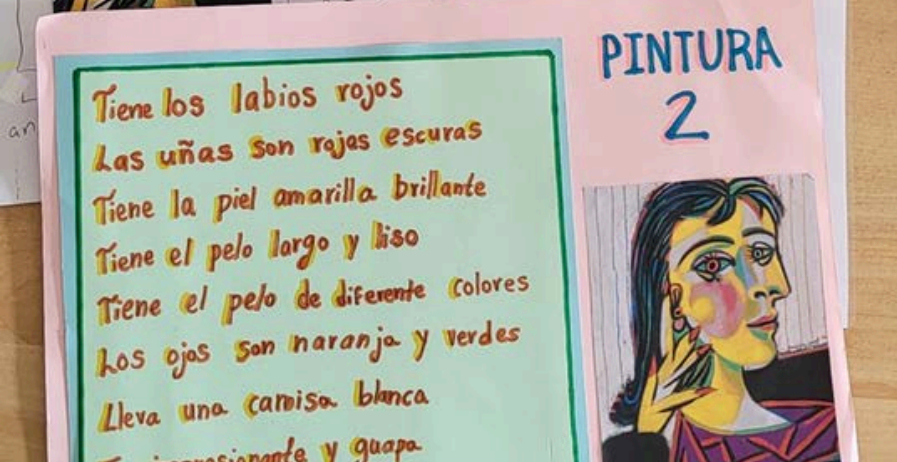 an
PINTURA
2
Tiene los labios rojos
Las uñas son rojas escuras
Tiene la piel amarilla brillante
Tiene el pelo largo y liso
Tiene el pelo de diferente colores
Los ojos son naranja y verdes
Lleva una camisa blanca
impresionante y guapa